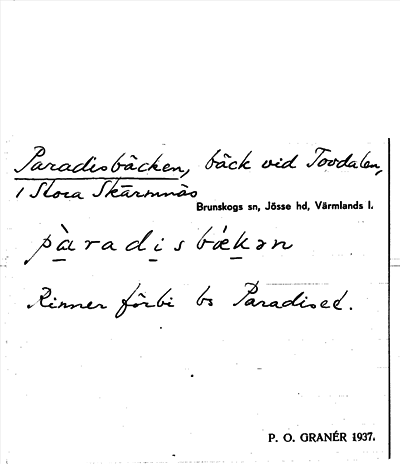 Paradisbäcken, bäck vid Tovdalen,
i Stora Skärmnäs
Brunskogs sn, Jösse hd, Värmlands l.
pàradisbækən
Rinner förbi bs Paradiset.
P. O. GRANÉR 1937.